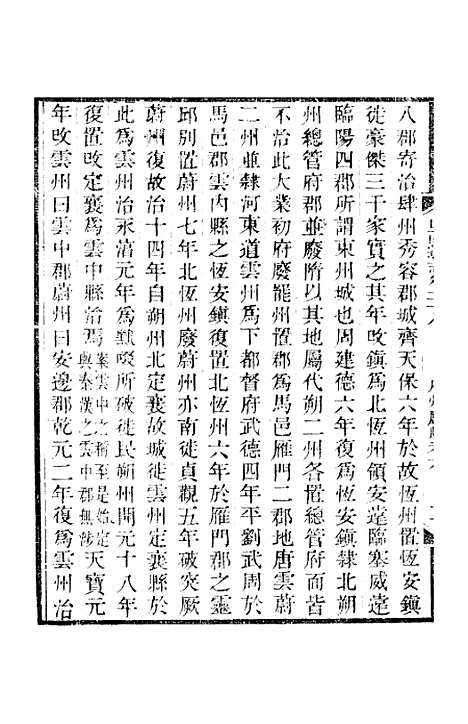 八郡寄治肆州秀容郡城齊天保六年於故恆州置恆安鎭
徙豪傑三千家實之其年改鎭爲北恆州領安遠臨塞威遠
臨陽四郡所謂東州城也周建德六年復爲恆安鎭隸北朔
州總管府郡並廢隋以其地屬代朔二州各置總管府而皆
不治此大業初府廢罷州置郡爲馬邑雁門二郡地唐雲蔚
二州並隸河東道雲州爲下都督府武德四年平劉武周於
馬邑郡雲內縣之恆安鎭復置北恆州六年於雁門郡之靈
邱別置蔚州七年北恆州廢蔚州亦南徙貞觀五年破突厥
蔚州復故治十四年自朔州北定襄故城徙雲州定襄縣於
此爲雲州治永淳元年爲默啜所破徙民朔州開元十八年
復置改定襄爲雲中縣治焉案雲中之稱至是始定與秦漢之雲中郡無涉天寶元
年改雲州曰雲中郡蔚州曰安邊郡乾元二年復爲雲州治